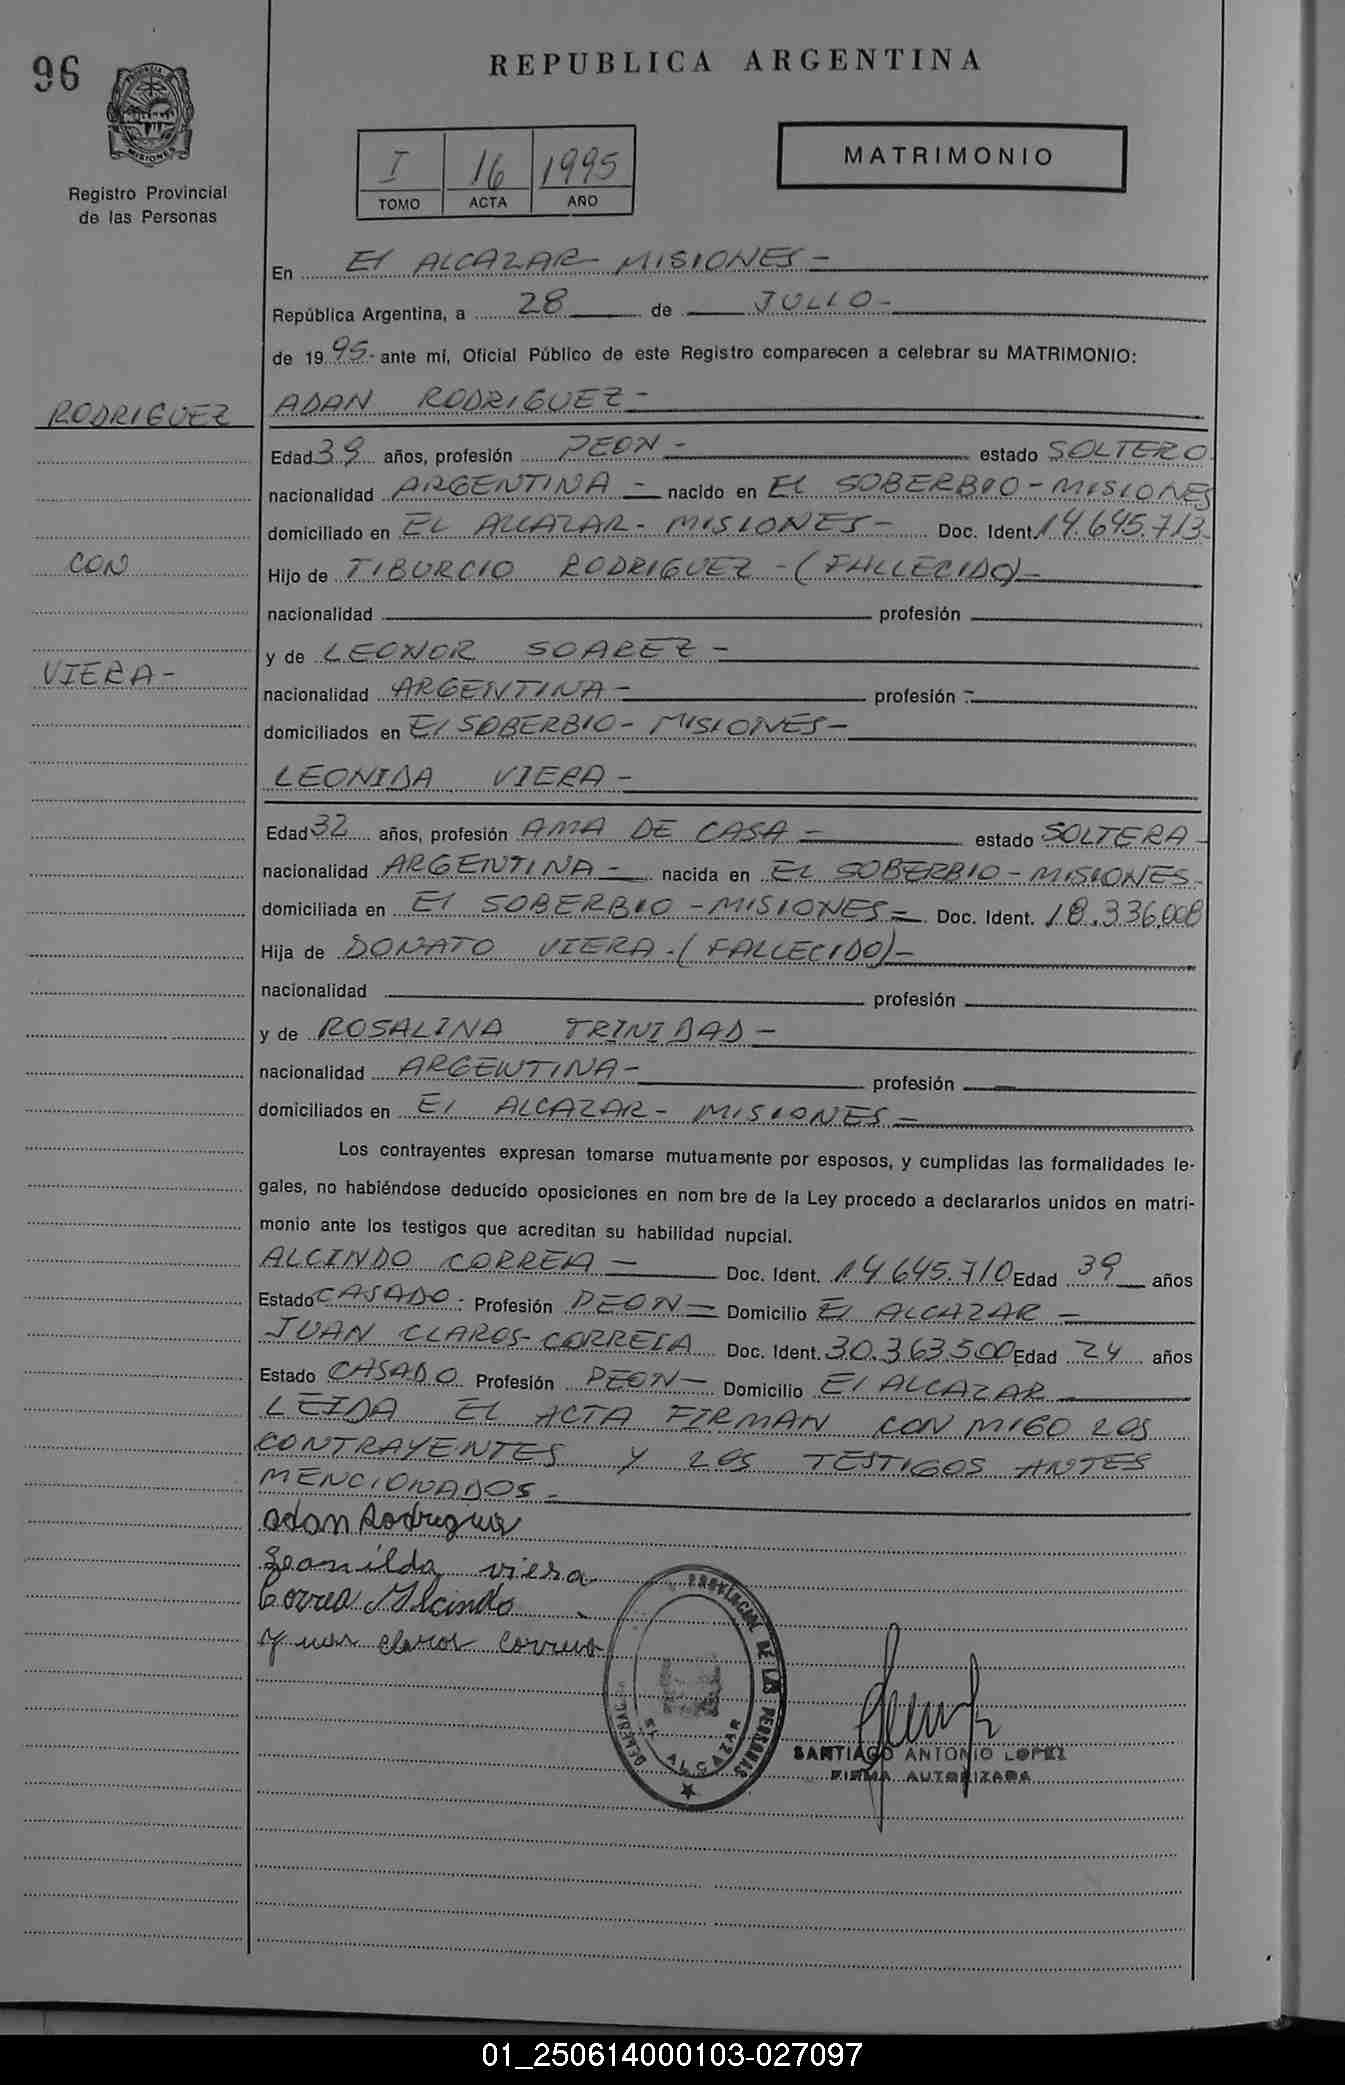 96
REPUBLICA ARGENTINA
PROVINCIA DE
MISIONES
Registro Provincial
de las Personas
I 16 1995
TOMO ACTA AÑO
MATRIMONIO
En El ALCAZAR MISIONES -
República Argentina, a 28 de JULIO -
de 19 95 - ante mí, Oficial Público de este Registro comparecen a celebrar su MATRIMONIO:
RODRIGUEZ
ADAN RODRIGUEZ -
Edad 39 años, profesión PEON - estado SOLTERO
nacionalidad ARGENTINA - nacido en El SOBERBIO - MISIONES
domiciliado en EL ALCAZAR - MISIONES - Doc. Ident. 14.645.713 -
CON
Hijo de TIBURCIO RODRIGUEZ - (FALLECIDO) -
nacionalidad profesión
y de LEONOR SOAREZ -
VIERA -
nacionalidad ARGENTINA - profesión -
domiciliados en El SOBERBIO - MISIONES -
LEONIDA VIERA -
Edad 32 años, profesión AMA DE CASA - estado SOLTERA -
nacionalidad ARGENTINA - nacida en EL SOBERBIO - MISIONES -
domiciliada en El SOBERBIO - MISIONES - Doc. Ident. 18.336.008
Hija de DONATO VIERA - (FALLECIDO) -
nacionalidad profesión
y de ROSALINA TRINIDAD -
nacionalidad ARGENTINA - profesión -
domiciliados en El ALCAZAR - MISIONES -
Los contrayentes expresan tomarse mutuamente por esposos, y cumplidas las formalidades le-
gales, no habiéndose deducido oposiciones en nom bre de la Ley procedo a declararlos unidos en matri-
monio ante los testigos que acreditan su habilidad nupcial.
ALCINDO CORREA - Doc. Ident. 14.645.710 Edad 39 años
Estado CASADO - Profesión PEON - Domicilio El ALCAZAR -
JUAN CLAROS CORREIA Doc. Ident. 30.363.500 Edad 24 años
Estado CASADO Profesión PEON - Domicilio El ALCAZAR
LEIDA EL ACTA FIRMAN CON MIGO LOS
CONTRAYENTES Y LOS TESTIGOS ANTES
MENCIONADOS -
adan Rodrigue
Leonilda viera
Correa Alcindo
claros
PROVINCIAL DE LAS PERSONAS
EL ALCAZAR
SANTIAGO ANTONIO LOPEZ
FIRMA AUTORIZADA
01_250614000103-027097